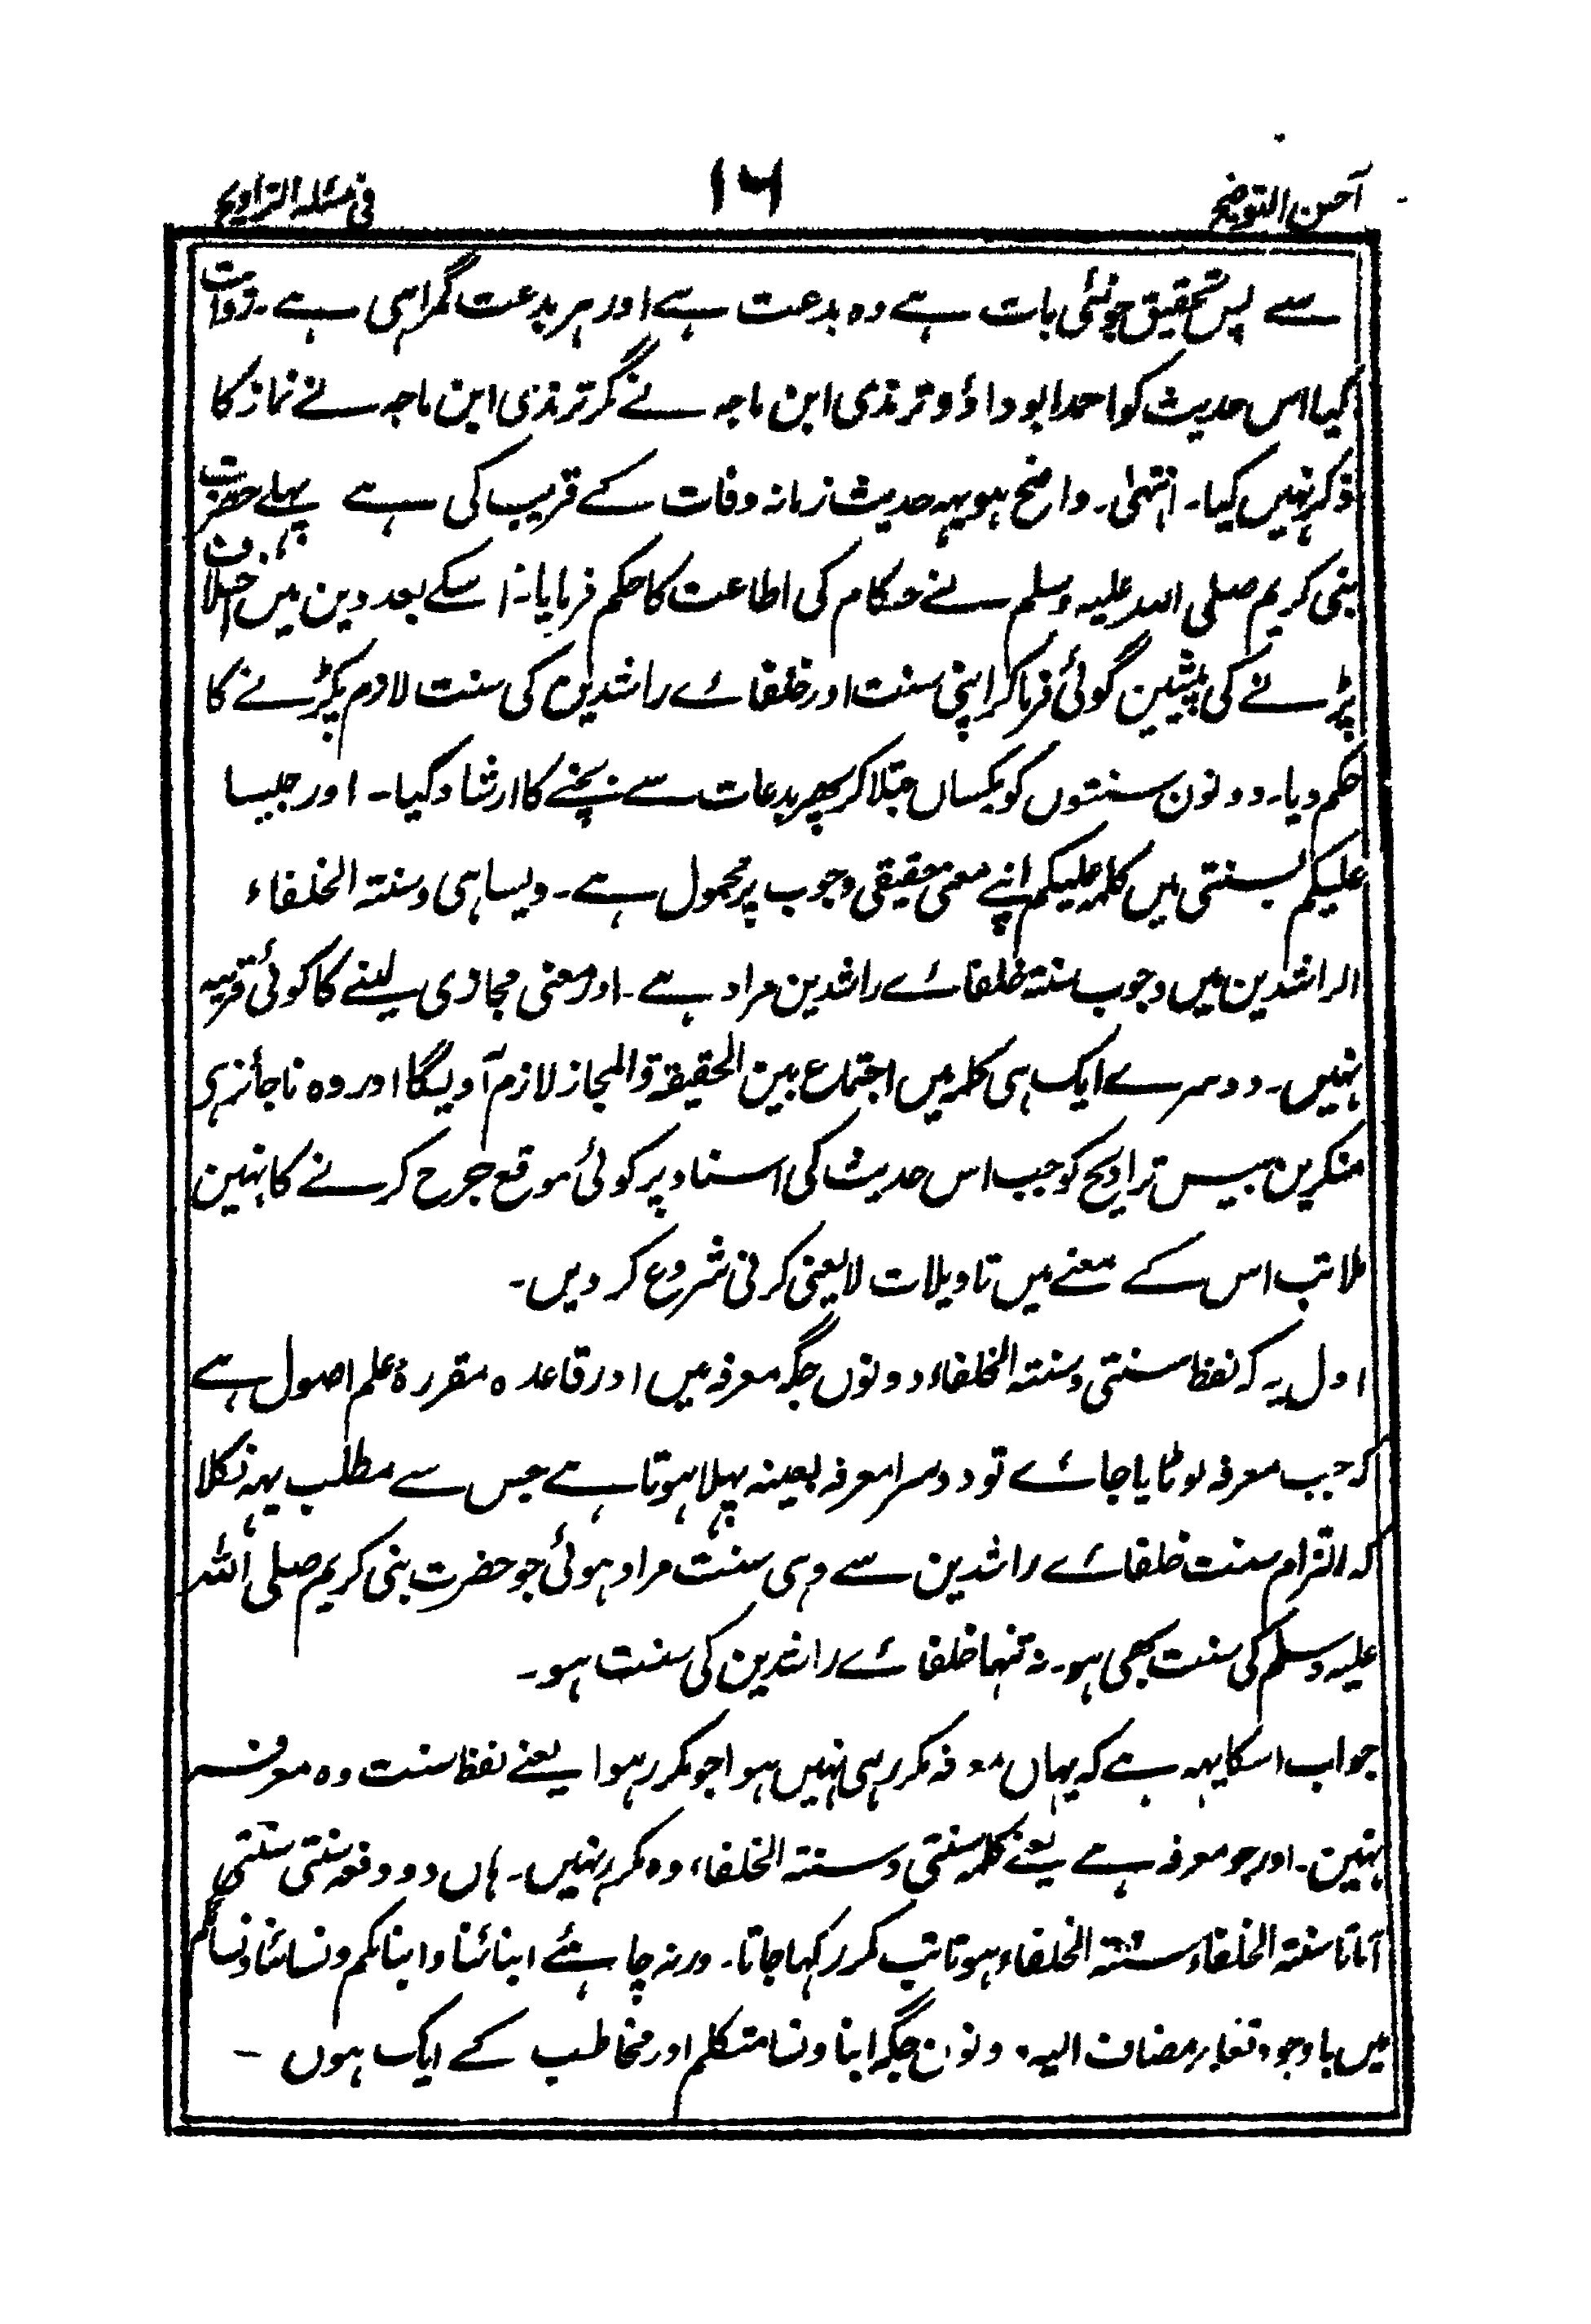 آحسن التوضیح
۱۶
فی مسئلہ التراویح
سے پس تحقیق جو نئی بات ہے وہ بدعت ہے اور ہر بدعت گمراہی ہے۔ روایت
کیا اس حدیث کو احمد ابو داؤد و ترمذی ابن ماجہ نے مگر ترمذی ابن ماجہ نے نماز کا
ذکر نہیں کیا۔ انتہیٰ۔ واضح ہو یہہ حدیث زمانہ وفات کے قریب کی ہے پہلے حضرت
نبی کریم صلی اللہ علیہ وسلم نے حکام کی اطاعت کا حکم فرمایا۔ اسکے بعد دین میں اختلاف
پڑنے کی پیشین گوئی فرما کر اپنی سنت اور خلفائے راشدین کی سنت لازم پکڑنے کا
حکم دیا۔ دونون سنتوں کو یکساں بتلا کر پھر بدعات سے بچنے کا ارشاد کیا۔ اور جیسا
علیکم بسنتی میں کلمہ علیکم اپنے معنی حقیقی وجوب پر محمول ہے۔ ویسا ہی وسنتہ الخلفاء
الراشدین میں وجوب سنتہ خلفائے راشدین مراد ہے۔ اور معنی مجازی لینے کا کوئی قرینہ
نہیں۔ دوسرے ایک ہی کلمہ میں اجتماع بین الحقیقۃ والمجاز لازم آویگا اور وہ ناجائز ہی
منکرین بیس تراویح کو جب اس حدیث کی اسناد پر کوئی موقع جرح کرنے کا نہین
ملا تب اس کے معنے میں تاویلات لایعنی کرنی شروع کر دیں۔
اول یہ کہ لفظ سنتی وسنتہ الخلفاء دونوں جگہ معرفہ میں اور قاعدہ مقررۂ علم اصول ہے
کہ جب معرفہ لوٹایا جائے تو دوسرا معرفہ بعینہ پہلا ہوتا ہے جس سے مطلب یہہ نکلا
کہ التزام سنت خلفائے راشدین سے وہی سنت مراد ہوئی جو حضرت نبی کریم صلی اللہ
علیہ وسلم کی سنت بھی ہو۔ نہ تنہا خلفائے راشدین کی سنت ہو۔
جواب اسکا یہہ ہے کہ یہاں معرفہ مکرر ہی نہیں ہوا جو مکرر ہوا یعنے لفظ سنت وہ معرفہ
نہین۔ اور جو معرفہ ہے یعنے کلمہ سنتی وسنتہ الخلفاء وہ مکرر نہیں۔ ہاں دو دفعہ سنتی سنتی
آتا تا سنتہ الخلفاء سنتہ الخلفاء ہوتا تب مکرر کہا جاتا۔ ورنہ چاہئے ابنائنا وابنائکم ونسائنا ونسائکم
میں باوجود تغایر مضاف الیہ دونون جگہ ابنا ونسا متکلم اور مخاطب کے ایک ہوں ۔